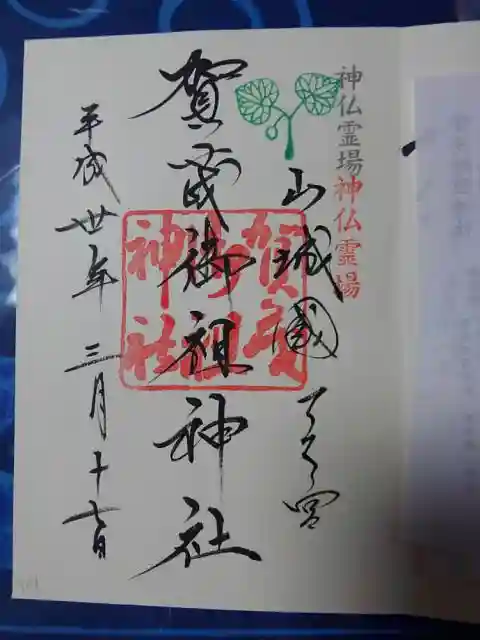 神仏霊場神仏霊場
山城國一之宮
賀茂御祖神社
賀茂御祖神社
平成丗年三月十七日